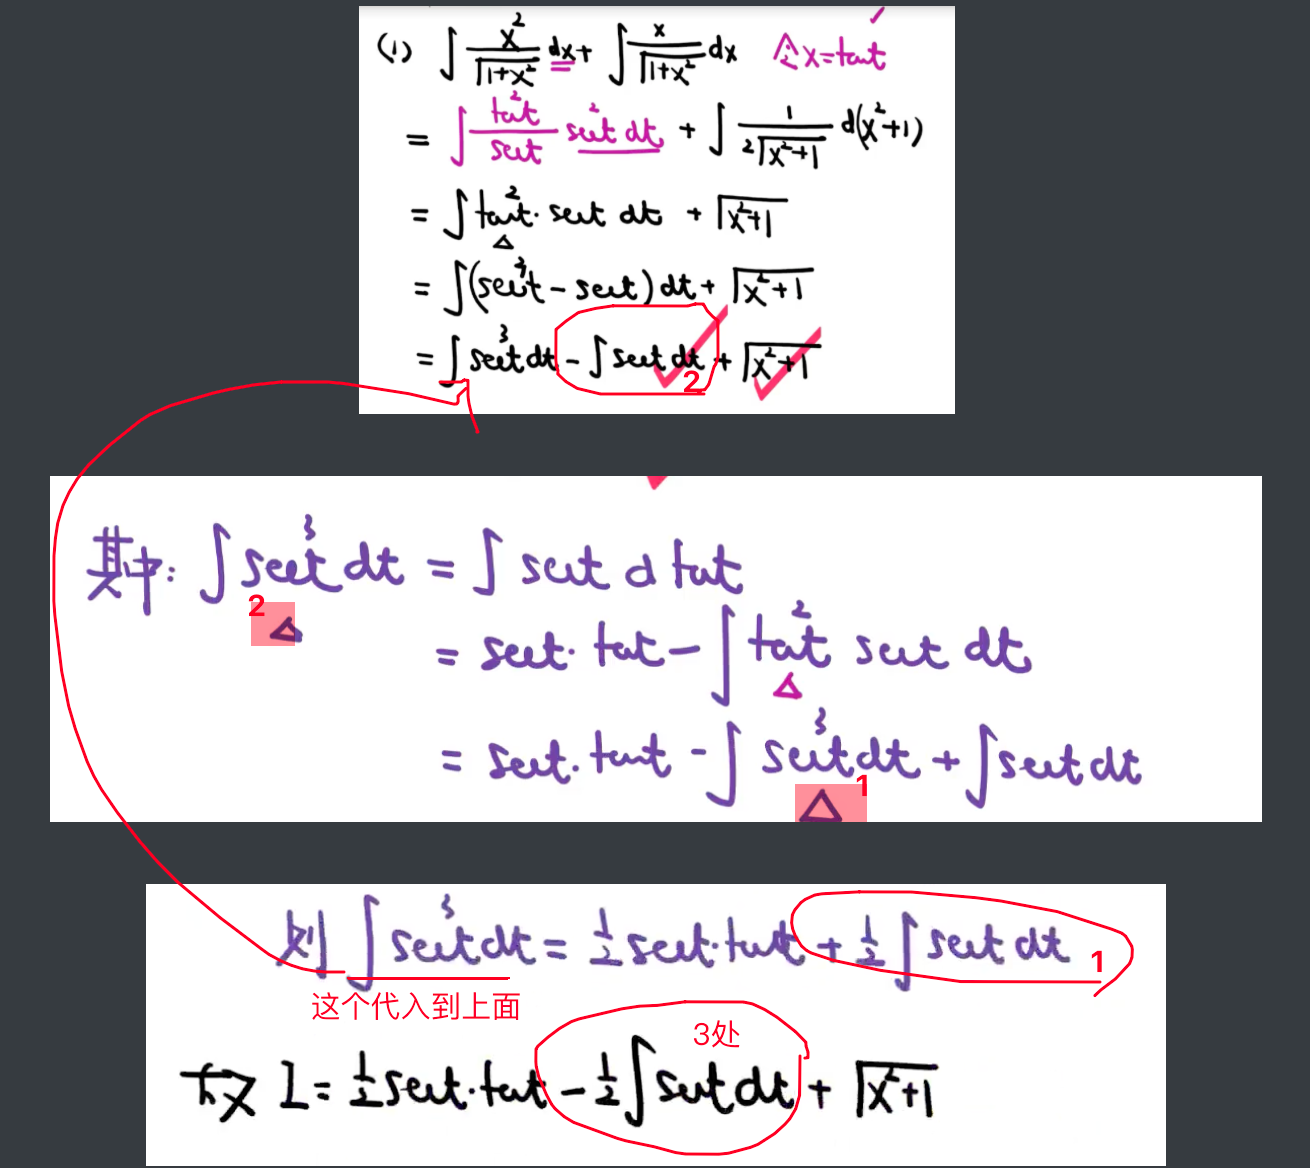 (1) ∫ x²/√(1+x²) dx + ∫ x/√(1+x²) dx 令x=tant
= ∫ tan²t/sect sec²t dt + ∫ 1/(2√(x²+1)) d(x²+1)
= ∫ tan²t · sect dt + √(x²+1)
= ∫(sec³t - sect) dt + √(x²+1)
= ∫ sec³t dt - ∫ sect dt + √(x²+1)
2
其中: ∫ sec³t dt = ∫ sect d tant
2
= sect · tant - ∫ tan²t sect dt
= sect · tant - ∫ sec³t dt + ∫ sect dt
1
则 ∫ sec³t dt = ½ sect · tant + ½ ∫ sect dt
1
这个代入到上面
3处
故 I = ½ sect · tant - ½ ∫ sect dt + √(x²+1)